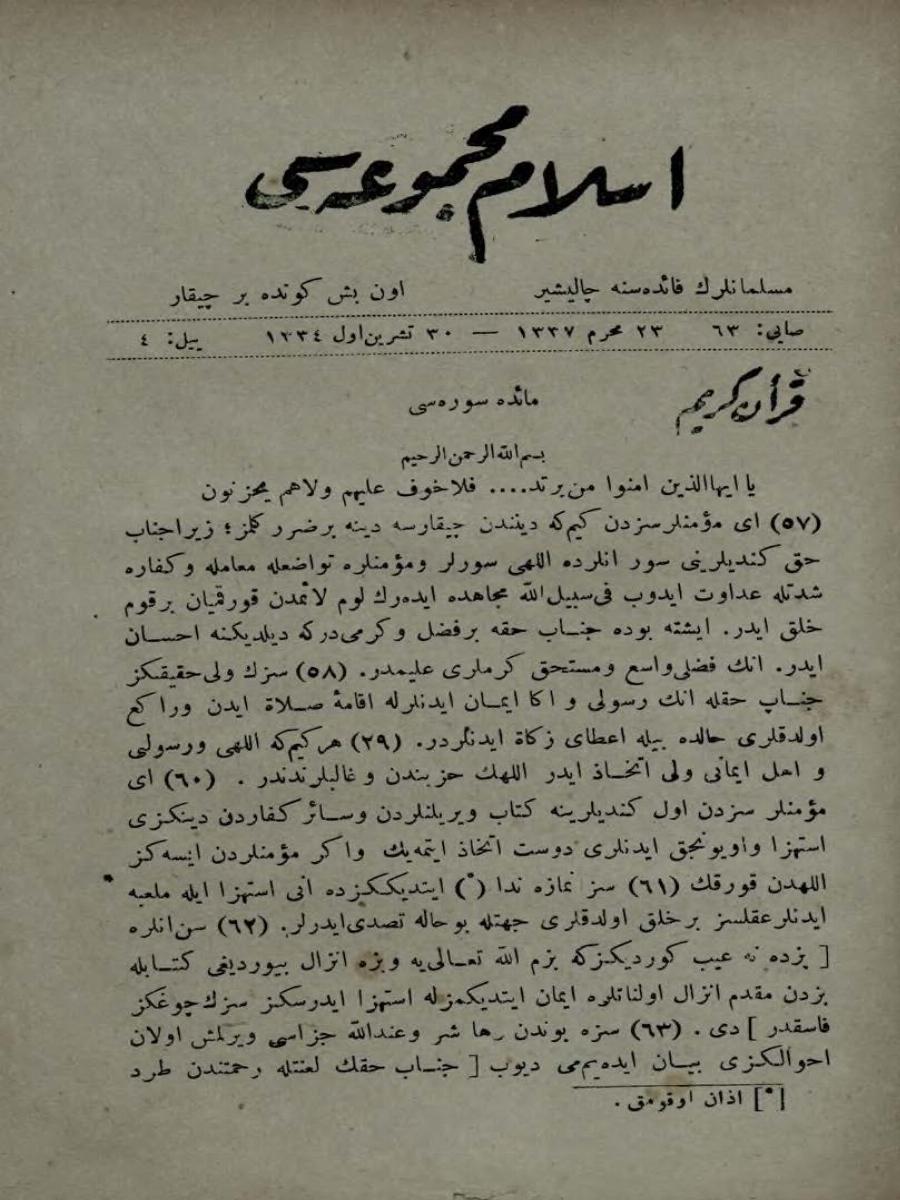 اسلام مجموعه‌سی
مسلمانلرك فائده‌سنه چالیشیر اون بش كونده بر چیقار
صایی: ٦٣ ٢٣ محرم ١٣٣٧ — ٣٠ تشرین‌اول ١٣٣٤ ییل: ٤
قرأن كریم
مائده سوره‌سی
بسم‌الله‌الرحمن‌الرحیم
یا ایهاالذین امنوا من یرتد.... فلاخوف علیهم ولاهم یحزنون
(٥٧) ای مؤمنلرسزدن كیم‌كه دیننده‌ن چیقارسه دینه برضرر كلمز؛ زیراجناب
حق كندیلرینی سور انلرده اللهی سورلر ومؤمنلره تواضعله معامله وكفاره
شدتله عداوت ایدوب فی‌سبیل‌الله مجاهده ایده‌رك لوم لائمدن قورقمیان برقوم
خلق ایدر. ایشته بوده جنـاب حقه برفضل وكرمی‌دركه دیلدیكنه احسـان
ایدر. انك فضلی‌واسع ومستحق كرملری علیمدر. (٥٨) سزك ولی‌حقیقیكز
جنـاب حقله انك رسولی و اكا ایمـان ایدنلرله اقامۀ صـلاة ایدن وراكع
اولدقلری حالده بیله اعطای زكاة ایدنلردر. (٢٩) هركیم‌كه اللهی ورسولی
و اهل ایمانی ولی اتخـاذ ایدر اللهك حزبندن وغالبلرندندر . (٦٠) ای
مؤمنلر سزدن اول كندیلرینه كتاب ویریلنلردن وسـائر كفاردن دینكزی
استهزا واویونجق ایدنلری دوست اتخاذ ایتمه‌یك واكر مؤمنلردن ایسه‌كز
اللهدن قورقك (٦١) سز نمازه ندا (*) ایتدیككزده انی استهزا ایله ملعبه
ایدنلرعقلسز برخلق اولدقلری جهتله بوحاله تصدی‌ایدرلر. (٦٢) سن‌انلره
[ بزده نه عیب كوردیكزكه بزم الله تعـالی‌یه وبزه انزال بیوردیغی كتـابله
بزدن مقدم انزال اولنانلره ایمان ایتدیكمزله استهزا ایدرسكز سزك‌چوغكز
فاسقدر ] دی . (٦٣) سزه بوندن رها شر وعندالله جزاسی ویرلمش اولان
احوالكزی بیـان ایده‌یم‌می دیوب [ جنـاب حقك لعنتله رحمتندن طرد
[*] اذان اوقومق .